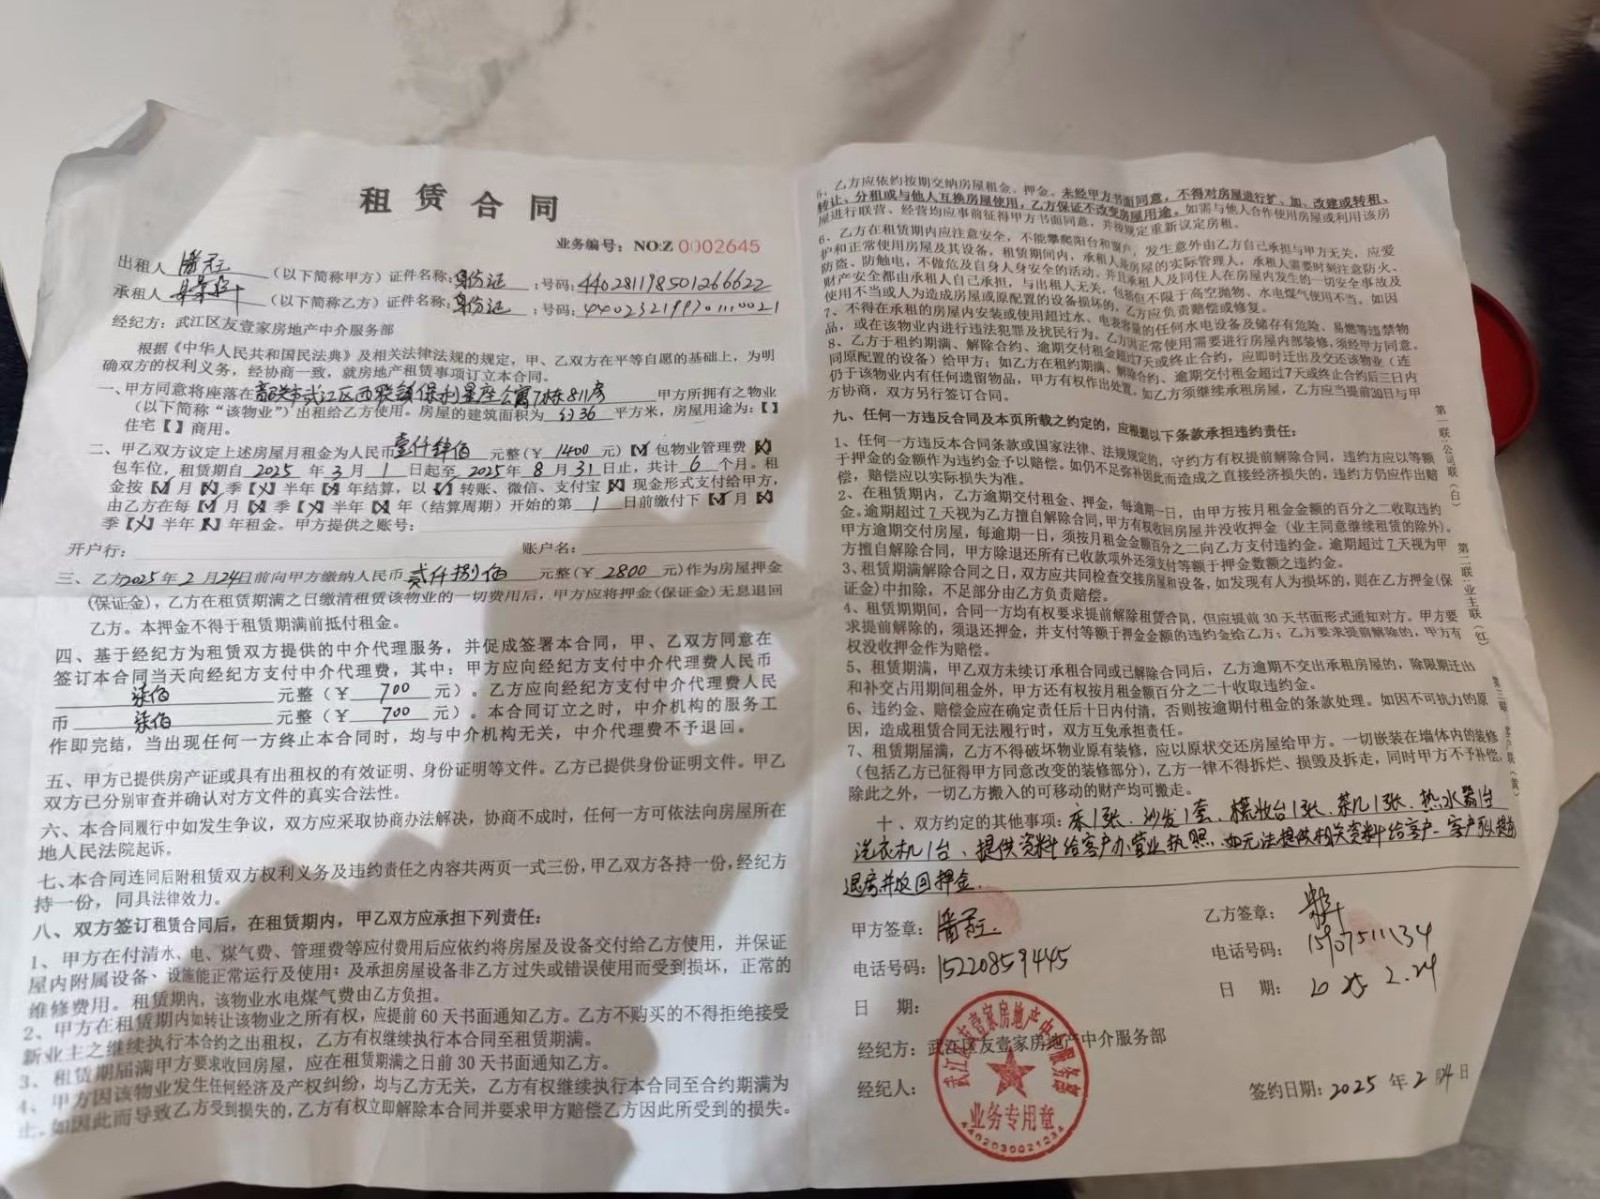 租赁合同
业务编号：NO:Z 0002645
出租人 （以下简称甲方）证件名称：身份证 ；号码：440281198501266622
承租人 （以下简称乙方）证件名称：身份证 ；号码：
经纪方：武江区友壹家房地产中介服务部
根据《中华人民共和国民法典》及相关法律法规的规定，甲、乙双方在平等自愿的基础上，为明
确双方的权利义务，经协商一致，就房地产租赁事项订立本合同。
一、甲方同意将座落在韶关市武江区西联镇保利星座公寓7栋811房 甲方所拥有之物业
（以下简称“该物业”）出租给乙方使用。房屋的建筑面积为 36 平方米，房屋用途为：【】
住宅【】商用。
二、甲乙双方议定上述房屋月租金为人民币壹仟肆佰 元整（￥ 1400 元）【】包物业管理费【】
包车位，租赁期自 2025 年 3 月 1 日起至 2025 年 8 月 31 日止，共计 6 个月。租
金按【】月【】季【】半年【】年结算，以【】转账、微信、支付宝【】现金形式支付给甲方，
由乙方在每【】月【】季【】半年【】年（结算周期）开始的第 1 日前缴付下【】月【】
季【】半年【】年租金。甲方提供之账号：
开户行： 账户名：
三、乙方2025年2月24日前向甲方缴纳人民币 贰仟捌佰 元整（￥ 2800 元）作为房屋押金
（保证金），乙方在租赁期满之日缴清租赁该物业的一切费用后，甲方应将押金（保证金）无息退回
乙方。本押金不得于租赁期满前抵付租金。
四、基于经纪方为租赁双方提供的中介代理服务，并促成签署本合同，甲、乙双方同意在
签订本合同当天向经纪方支付中介代理费，其中：甲方应向经纪方支付中介代理费人民币
柒佰 元整（￥ 700 元）。乙方应向经纪方支付中介代理费人民
币 柒佰 元整（￥ 700 元）。本合同订立之时，中介机构的服务工
作即完结，当出现任何一方终止本合同时，均与中介机构无关，中介代理费不予退回。
五、甲方已提供房产证或具有出租权的有效证明、身份证明等文件。乙方已提供身份证明文件。甲乙
双方已分别审查并确认对方文件的真实合法性。
六、本合同履行中如发生争议，双方应采取协商办法解决，协商不成时，任何一方可依法向房屋所在
地人民法院起诉。
七、本合同连同后附租赁双方权利义务及违约责任之内容共两页一式三份，甲乙双方各持一份，经纪方
持一份，同具法律效力。
八、双方签订租赁合同后，在租赁期内，甲乙双方应承担下列责任：
1、甲方在付清水、电、煤气费、管理费等应付费用后应依约将房屋及设备交付给乙方使用，并保证
屋内附属设备、设施能正常运行及使用；及承担房屋设备非乙方过失或错误使用而受到损坏，正常的
维修费用。租赁期内，该物业水电煤气费由乙方负担。
2、甲方在租赁期内如转让该物业之所有权，应提前60天书面通知乙方。乙方不购买的不得拒绝接受
新业主之继续执行本合约之出租权，乙方有权继续执行本合同至租赁期满。
3、租赁期届满甲方要求收回房屋，应在租赁期满之日前30天书面通知乙方。
4、甲方因该物业发生任何经济及产权纠纷，均与乙方无关，乙方有权继续执行本合同至合约期满为
止。如因此而导致乙方受到损失的，乙方有权立即解除本合同并要求甲方赔偿乙方因此所受到的损失。
5、乙方应依约按期交纳房屋租金、押金。未经甲方书面同意，不得对房屋进行扩、加、改建或转租、
转让、分租或与他人互换房屋使用，乙方保证不改变房屋用途，如需与他人合作使用房屋或利用该房
屋进行联营、经营均应事前征得甲方书面同意，并按规定重新议定房租。
6、乙方在租赁期内应注意安全，不能攀爬阳台和窗户，发生意外由乙方自己承担与甲方无关，应爱
护和正常使用房屋及其设备，租赁期间内，承租人是房屋的实际管理人，承租人需要时刻注意防火、
防盗、防触电，不做危及自身人身安全的活动，并且承租人及同住人在房屋内发生的一切安全事故及
财产安全都由承租人自己承担，与出租人无关，包括但不限于高空抛物、水电煤气使用不当。如因
使用不当或人为造成房屋或原配置的设备损坏的，乙方应负责赔偿或修复。
7、不得在承租的房屋内安装或使用超过水、电表容量的任何水电设备及储存有危险、易燃等违禁物
品，或在该物业内进行违法犯罪及扰民行为。乙方因正常使用需要进行房屋内部装修，须经甲方同意。
8、乙方于租约期满、解除合约、逾期交付租金超过7天或终止合约，应即时迁出及交还该物业（连
同原配置的设备）给甲方；如乙方在租约期满、解除合约、逾期交付租金超过7天或终止合约后三日内
仍于该物业内有任何遗留物品，甲方有权作出处置。如乙方须继续承租房屋，乙方应当提前30日与甲
方协商，双方另行签订合同。
九、任何一方违反合同及本页所载之约定的，应根据以下条款承担违约责任：
1、任何一方违反本合同条款或国家法律、法规规定的，守约方有权提前解除合同，违约方应以等额
于押金的金额作为违约金予以赔偿。如仍不足弥补因此而造成之直接经济损失的，违约方仍应作出赔
偿，赔偿应以实际损失为准。
2、在租赁期内，乙方逾期交付租金、押金，每逾期一日，由甲方按月租金金额的百分之二收取违约
金。逾期超过7天视为乙方擅自解除合同，甲方有权收回房屋并没收押金（业主同意继续租赁的除外）。
甲方逾期交付房屋，每逾期一日，须按月租金金额百分之二向乙方支付违约金。逾期超过7天视为甲
方擅自解除合同，甲方除退还所有已收款项外还须支付等额于押金数额之违约金。
3、租赁期满解除合同之日，双方应共同检查交接房屋和设备，如发现有人为损坏的，则在乙方押金（保
证金）中扣除，不足部分由乙方负责赔偿。
4、租赁期期间，合同一方均有权要求提前解除租赁合同，但应提前30天书面形式通知对方。甲方要
求提前解除的，须退还押金，并支付等额于押金金额的违约金给乙方；乙方要求提前解除的，甲方有
权没收押金作为赔偿。
5、租赁期满，甲乙双方未续订承租合同或已解除合同后，乙方逾期不交出承租房屋的，除限期迁出
和补交占用期间租金外，甲方还有权按月租金额百分之二十收取违约金。
6、违约金、赔偿金应在确定责任后十日内付清，否则按逾期付租金的条款处理。如因不可抗力的原
因，造成租赁合同无法履行时，双方互免承担责任。
7、租赁期届满，乙方不得破坏物业原有装修，应以原状交还房屋给甲方。一切嵌装在墙体内的装修
（包括乙方已征得甲方同意改变的装修部分），乙方一律不得拆烂、损毁及拆走，同时甲方不予补偿。
除此之外，一切乙方搬入的可移动的财产均可搬走。
十、双方约定的其他事项：床1张、沙发1套、梳妆台1张、茶几1张、热水器1台
洗衣机1台、提供资料给客户办营业执照、如无法提供相关资料给客户、客户可以提前
退房并收回押金。
甲方签章： 乙方签章：
电话号码：15220859445 电话号码：15907511134
日 期： 日 期：2025 2.24
经纪方：武江区友壹家房地产中介服务部
经纪人：
签约日期：2025 年 2 月24日
武江区友壹家房地产中介服务部
业务专用章
4402030021234
第一联：公司联（白）
第二联：业主联（红）
第三联：客户联（黄）